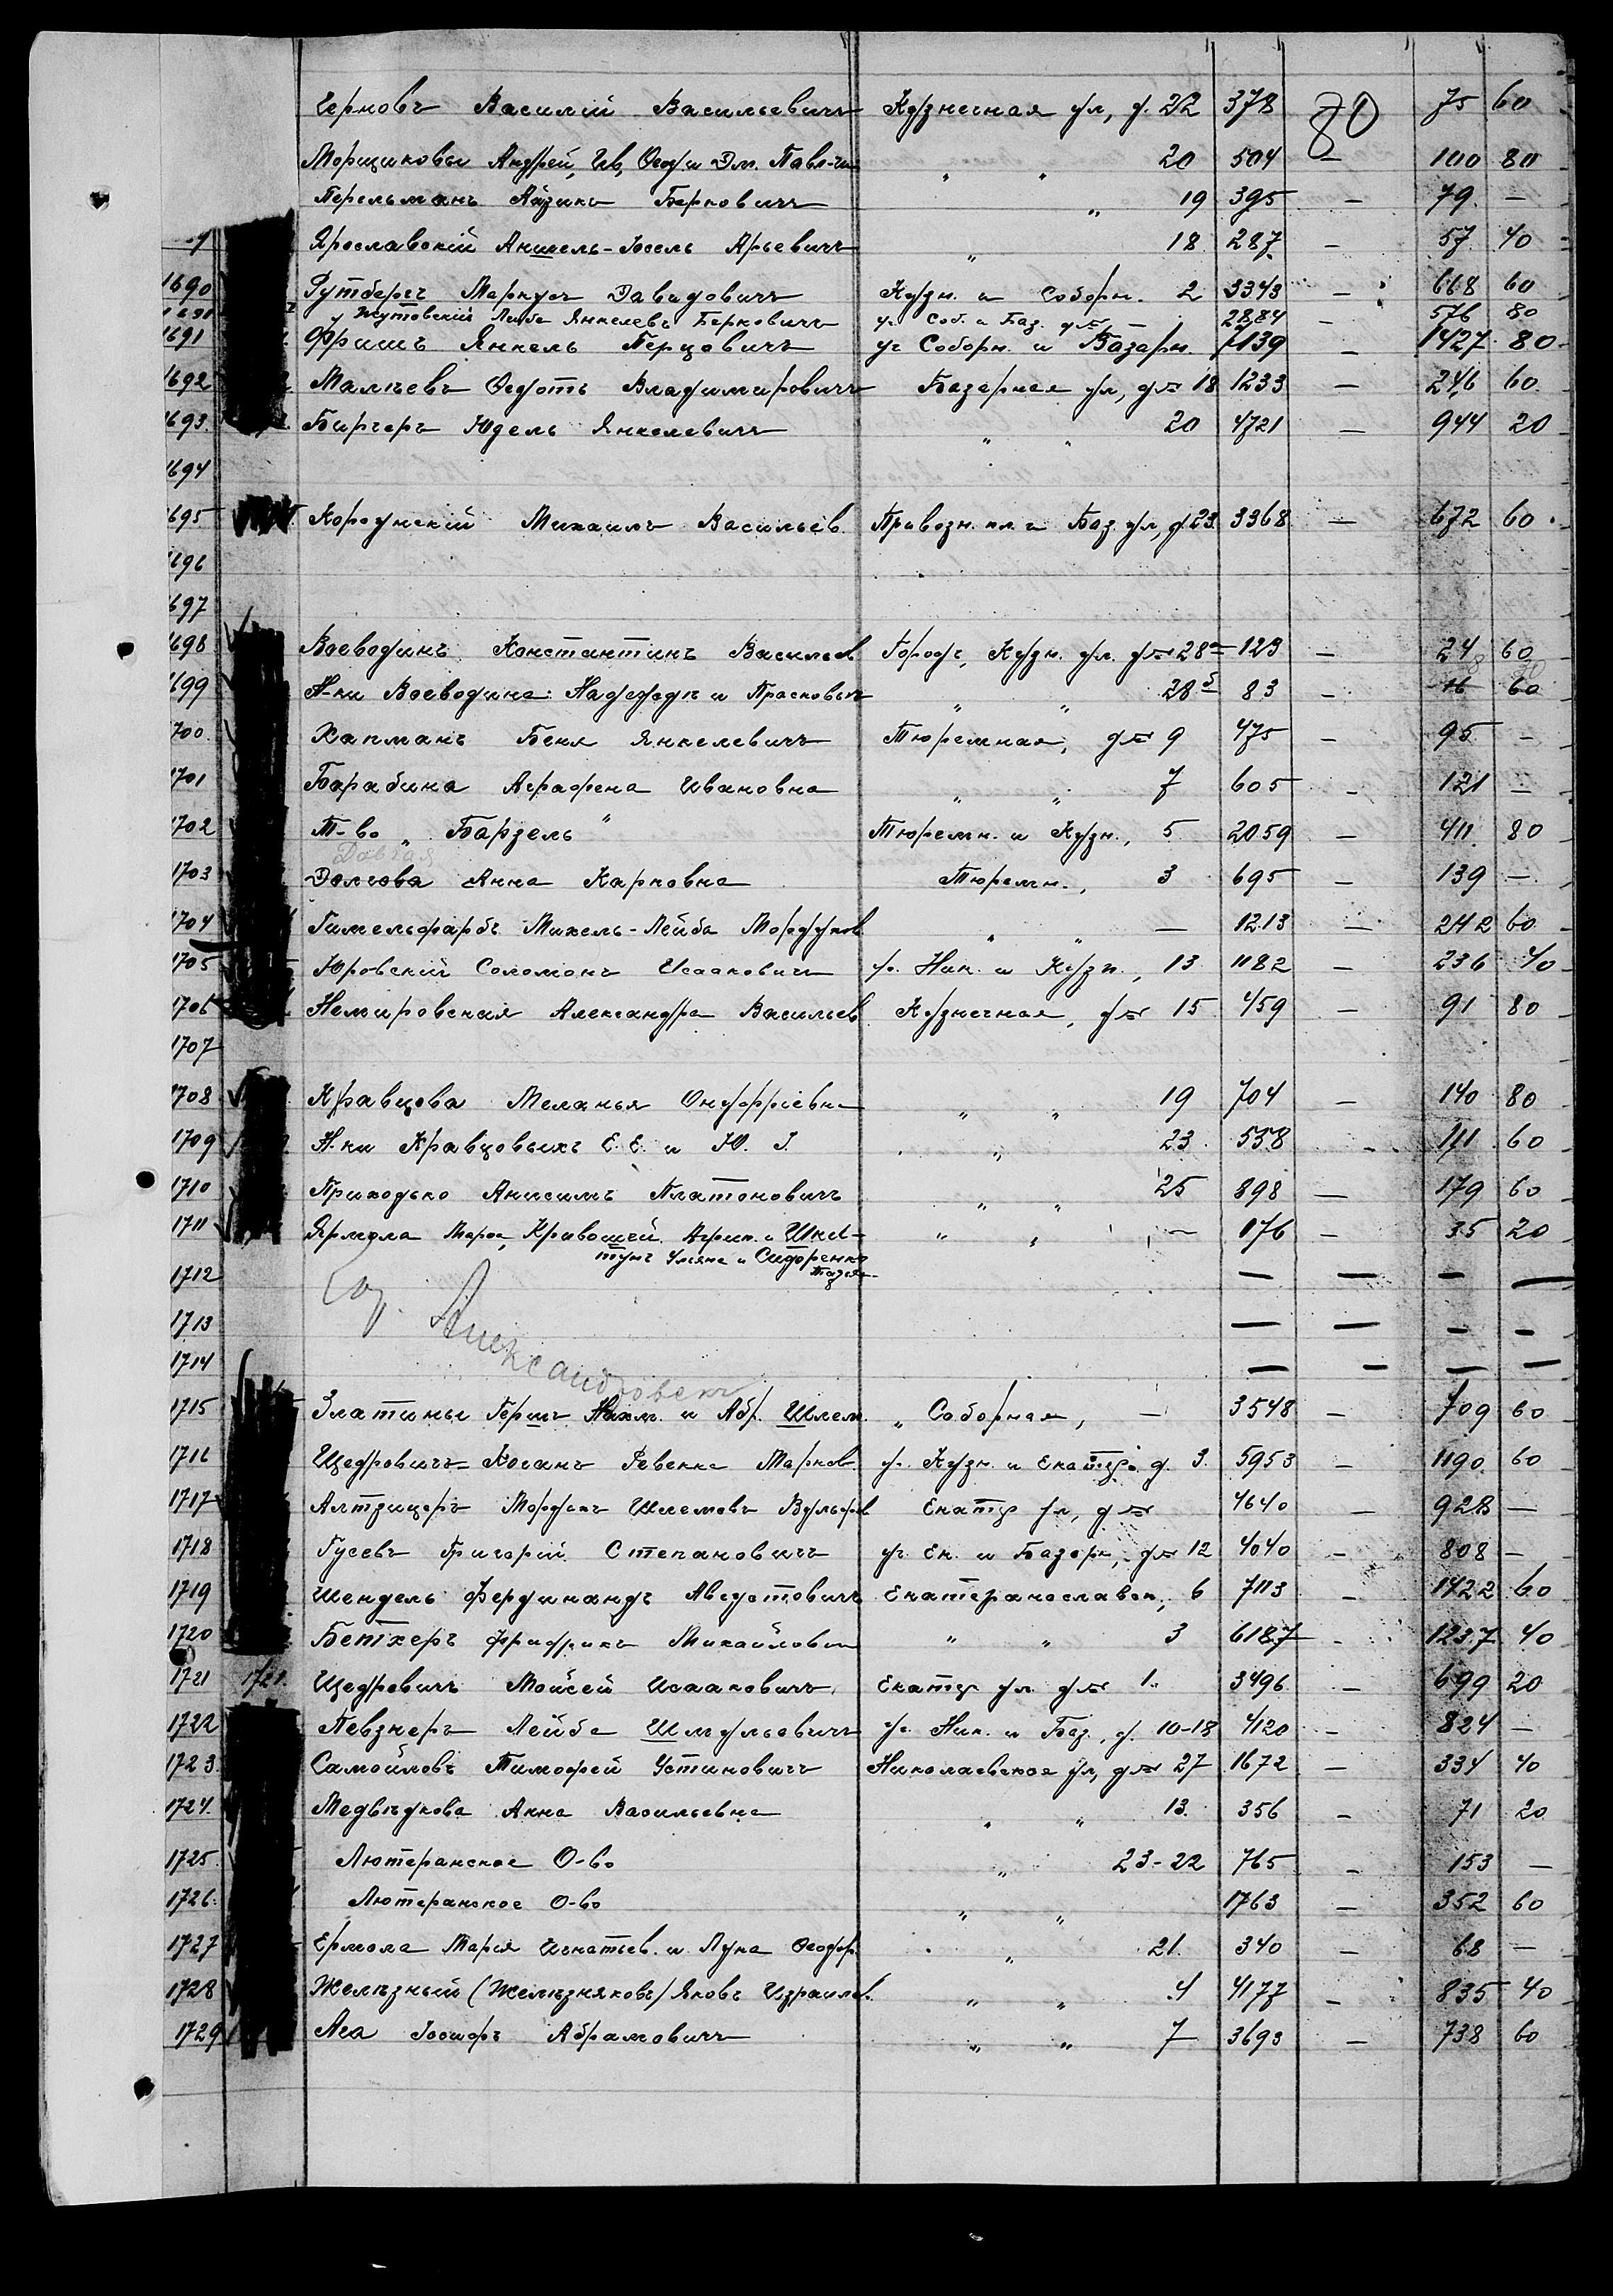 Черновъ Василій Васильевичъ Кузнечная ул, д. 22 378 80 75 60
Морщиковы Андрей, Ив, Ѳед. и Дм. Павл-чи „ „ 20 504 — 100 80
Перельманъ Айзикъ Берковичъ „ 19 395 — 79 —
Ярославскій Аншель-Іосель Арьевичъ „ 18 287 — 57 40
1690 Рутбергъ Маркусъ Давидовичъ Кузн. и Соборн. 2 3343 — 668 60
Жутовскій Лейба Янкелевъ Берковичъ уг. Соб. и Баз. д № — 2884 — 576 80
1691 Фришъ Янкель Перцовичъ уг Соборн. и Базарн. 7139 — 1427 80
1692 Малѣевъ Ѳедотъ Владимировичъ Базарная ул, д № 18 1233 — 246 60
1693. Биргеръ Юдель Янкелевичъ „ „ 20 4721 — 944 20
1694
1695 Корсунскій Михаилъ Васильев. Привозн. пл. и Баз. ул, д 23 3368 — 672 60
1696
1697
1698 Воеводинъ Константинъ Васильев Городъ, Кузн. ул. д № 28а 123 — 24 60
1699 Н-ки Воеводина: Надежда и Прасковья „ „ 28б 83 — 16 60
1700. Хапманъ Беня Янкелевичъ Тюремная, д № 9 475 — 95 —
1701 Барабина Аграфена Ивановна „ „ 7 605 — 121 —
1702 Т-во „Барзель“ Тюремн. и Кузн., 5 2059 — 411 80
Довгая
1703 Долгова Анна Карповна Тюремн., 3 695 — 139 —
1704 Гимельфарбъ Михель-Лейба Мордухов „ „ — 1213 — 242 60
1705 Юровскій Соломонъ Исааковичъ у. Ник. и Кузн., 13 1182 — 236 40
1706 Немировская Александра Васильев Кузнечная, д № 15 459 — 91 80
1707
1708 Кравцова Меланья Онуфріевна „ „ 19 704 — 140 80
1709 Н-ки Кравцовыхъ Е. Е. и Ю. І. „ 23 558 — 111 60
1710 Приходько Анисимъ Платоновичъ „ „ 25 898 — 179 60
1711 Ярмола Марія, Кривошей Агрип. и Шкл- „ „ — 176 — 35 20
тунъ Ульяна и Сидоренко
1712 — — — —
1713 — — — —
1714 — — — —
Александровскъ
1715 Златины Гершъ Нахм. и Абр. Шлем. „ Соборная, — 3548 — 709 60
1716 Щедровичъ-Коганъ Ревекка Марков. у. Кузн. и Екатер. д. 3. 5953 — 1190 60
1717 Алтзицеръ Мордухъ Шлемовъ Вульфов Екатер ул, д № 4640 — 928 —
1718 Гусевъ Григорій Степановичъ уг Ек. и Базарн, д № 12 4040 — 808 —
1719 Шендель Фердинандъ Августовичъ Екатеринославск., 6 7113 — 1422 60
1720 Бетхеръ Фридрихъ Михайловичъ „ „ 3 6187 — 1237 40
1721 1721. Щедровичъ Мойсей Исааковичъ Екатер ул д № 1. 3496 — 699 20
1722 Певзнеръ Лейба Шмульовичъ у. Ник. и Баз., д. 10-18 4120 — 824 —
1723. Самойловъ Тимофей Устиновичъ Николаевская ул, д № 27 1672 — 334 40
1724. Медвѣдкова Анна Васильевна „ „ 13 356 — 71 20
1725 Лютеранское О-во „ 23-22 765 — 153 —
1726 Лютеранское О-во „ „ 1763 — 352 60
1727 Ермола Марія Игнатьев. и Лука Ѳеодор. „ 21. 340 — 68 —
1728 Желѣзный (Желѣзняковъ) Яковъ Израилев. „ „ 4 4177 — 835 40
1729 Аса Іосифъ Абрамовичъ „ „ 7 3693 — 738 60